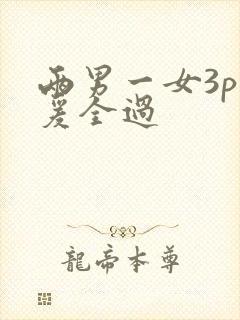 两男一女3p
爱全過
龍帝本尊